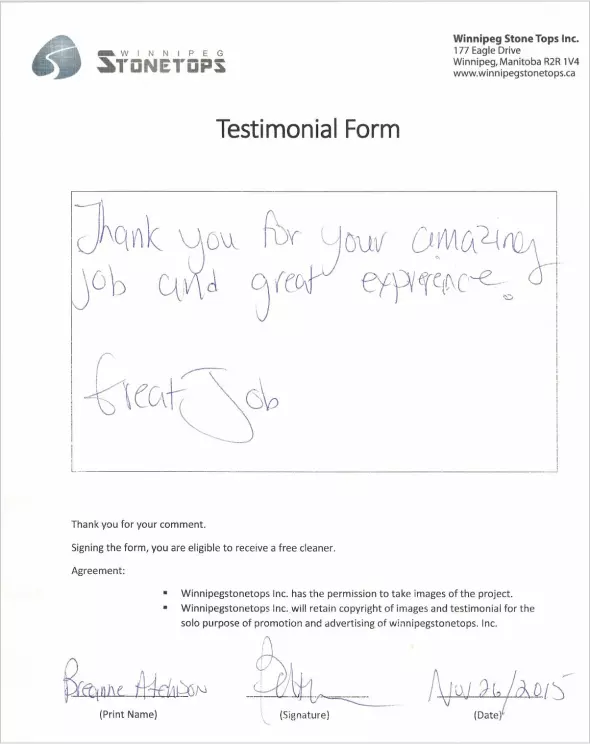 WINNIPEG
STONETOPS
Winnipeg Stone Tops Inc.
177 Eagle Drive
Winnipeg, Manitoba R2R 1V4
www.winnipegstonetops.ca
Testimonial Form
Thank you for your amazing
job and great expirence.
Great Job
Thank you for your comment.
Signing the form, you are eligible to receive a free cleaner.
Agreement:
▪ Winnipegstonetops Inc. has the permission to take images of the project.
▪ Winnipegstonetops Inc. will retain copyright of images and testimonial for the
solo purpose of promotion and advertising of winnipegstonetops. Inc.
Breanne Atchison Nov 26/2015
(Print Name) (Signature) (Date)